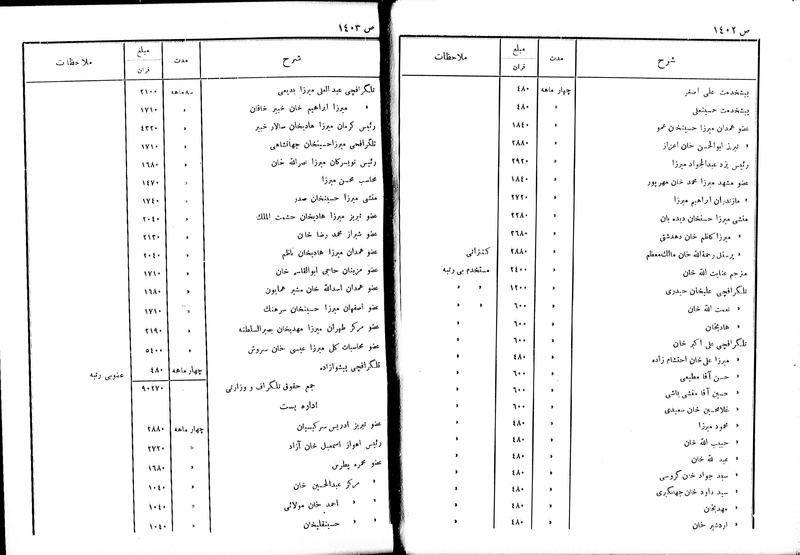 ص ۱۴۰۲
شرح	مدت	مبلغ قران	ملاحظات
پیشخدمت علی اصغر	چهار ماهه	۴۸۰
پیشخدمت حسینعلی	«	۴۸۰
عضو همدان میرزا حسینخان عمو	«	۱۸۴۰
« تبریز ابوالحسن خان اعزاز	«	۲۸۸۰
رئیس یزد عبدالجواد میرزا	«	۲۹۲۰
عضو مشهد میرزا محمد خان مهرپور	«	۱۸۴۰
« مازندران ابراهیم میرزا	«	۲۷۲۰
منشی میرزا حسنخان دیده بان	«	۲۲۸۰
« میرزا کاظم خان دهدشتی	«	۲۶۸۰
« پرسنل رحمةالله خان ملک‌معظم	«	۲۸۸۰	کنتراتی
مترجم عنایت الله خان	«	۲۴۰۰	مستخدم بی رتبه
تلگرافچی علیخان حیدری	«	۱۲۰۰	« «
« نعمت الله خان	«	۶۰۰	« «
« هادیخان	«	۶۰۰	«
تلگرافچی علی اکبر خان	«	۶۰۰	«
« میرزا علی خان احتشام زاده	«	۴۸۰	«
« حسن آقا مطیعی	«	۶۰۰	«
« حسین آقا مفشی باشی	«	۶۰۰	«
« غلامحسین خان سعیدی	«	۶۰۰	«
« محمود میرزا	«	۴۸۰	«
« حبیب الله خان	«	۴۸۰	«
« عبد الله خان	«	۴۸۰	«
« سید جواد خان کروسی	«	۴۸۰	«
« سید داود خان جهانگیری	«	۴۸۰	«
« مهدیخان	«	۴۸۰	«
« اردشیر خان	«	۴۸۰	«
ص ۱۴۰۳
شرح	مدت	مبلغ قران	ملاحظات
تلگرافچی عبدالعلی میرزا بدیعی	سه ماهه	۲۱۰۰
« میرزا ابراهیم خان خبیر خاقان	«	۱۷۱۰
رئیس کرمان میرزا هادیخان سالار خبیر	«	۴۳۲۰
تلگرافچی میرزا حسینخان جهانشاهی	«	۱۷۱۰
رئیس تویسرکان میرزا نصرالله خان	«	۱۶۸۰
محاسب محسن میرزا	«	۱۴۷۰
منشی میرزا حسینخان صدر	«	۱۷۴۰
عضو تبریز میرزا هادیخان حشمت الملک	«	۲۰۴۰
عضو شیراز محمد رضا خان	«	۲۱۳۰
عضو همدان میرزا هادیخان ناظم	«	۲۰۴۰
عضو مزینان حاجی ابوالقاسم خان	«	۱۷۱۰
عضو همدان اسدالله خان مشیر همایون	«	۱۶۸۰
عضو اصفهان میرزا حسینخان سرهنگ	«	۱۷۱۰
عضو مرکز طهران میرزا مهدیخان بصیرالسلطنه	«	۲۱۹۰
عضو محاسبات کل میرزا عیسی خان سروش	«	۵۴۰۰
تلگرافچی پیشوازاده	چهار ماهه	۴۸۰	عضو بی رتبه
جمع حقوق تلگراف و وزارتی	۹۰۲۷۰
اداره پست
عضو تبریز ادریس سرکیسیان	چهار ماهه	۲۸۸۰
رئیس اهواز اسمعیل خان آزاد	«	۲۷۲۰
عضو محمره پطرس	«	۱۶۸۰
« مرکز عبدالحسین خان	«	۱۰۴۰
« « احمد خان مولائی	«	۱۰۴۰
« « حسینقلیخان	«	۱۰۴۰